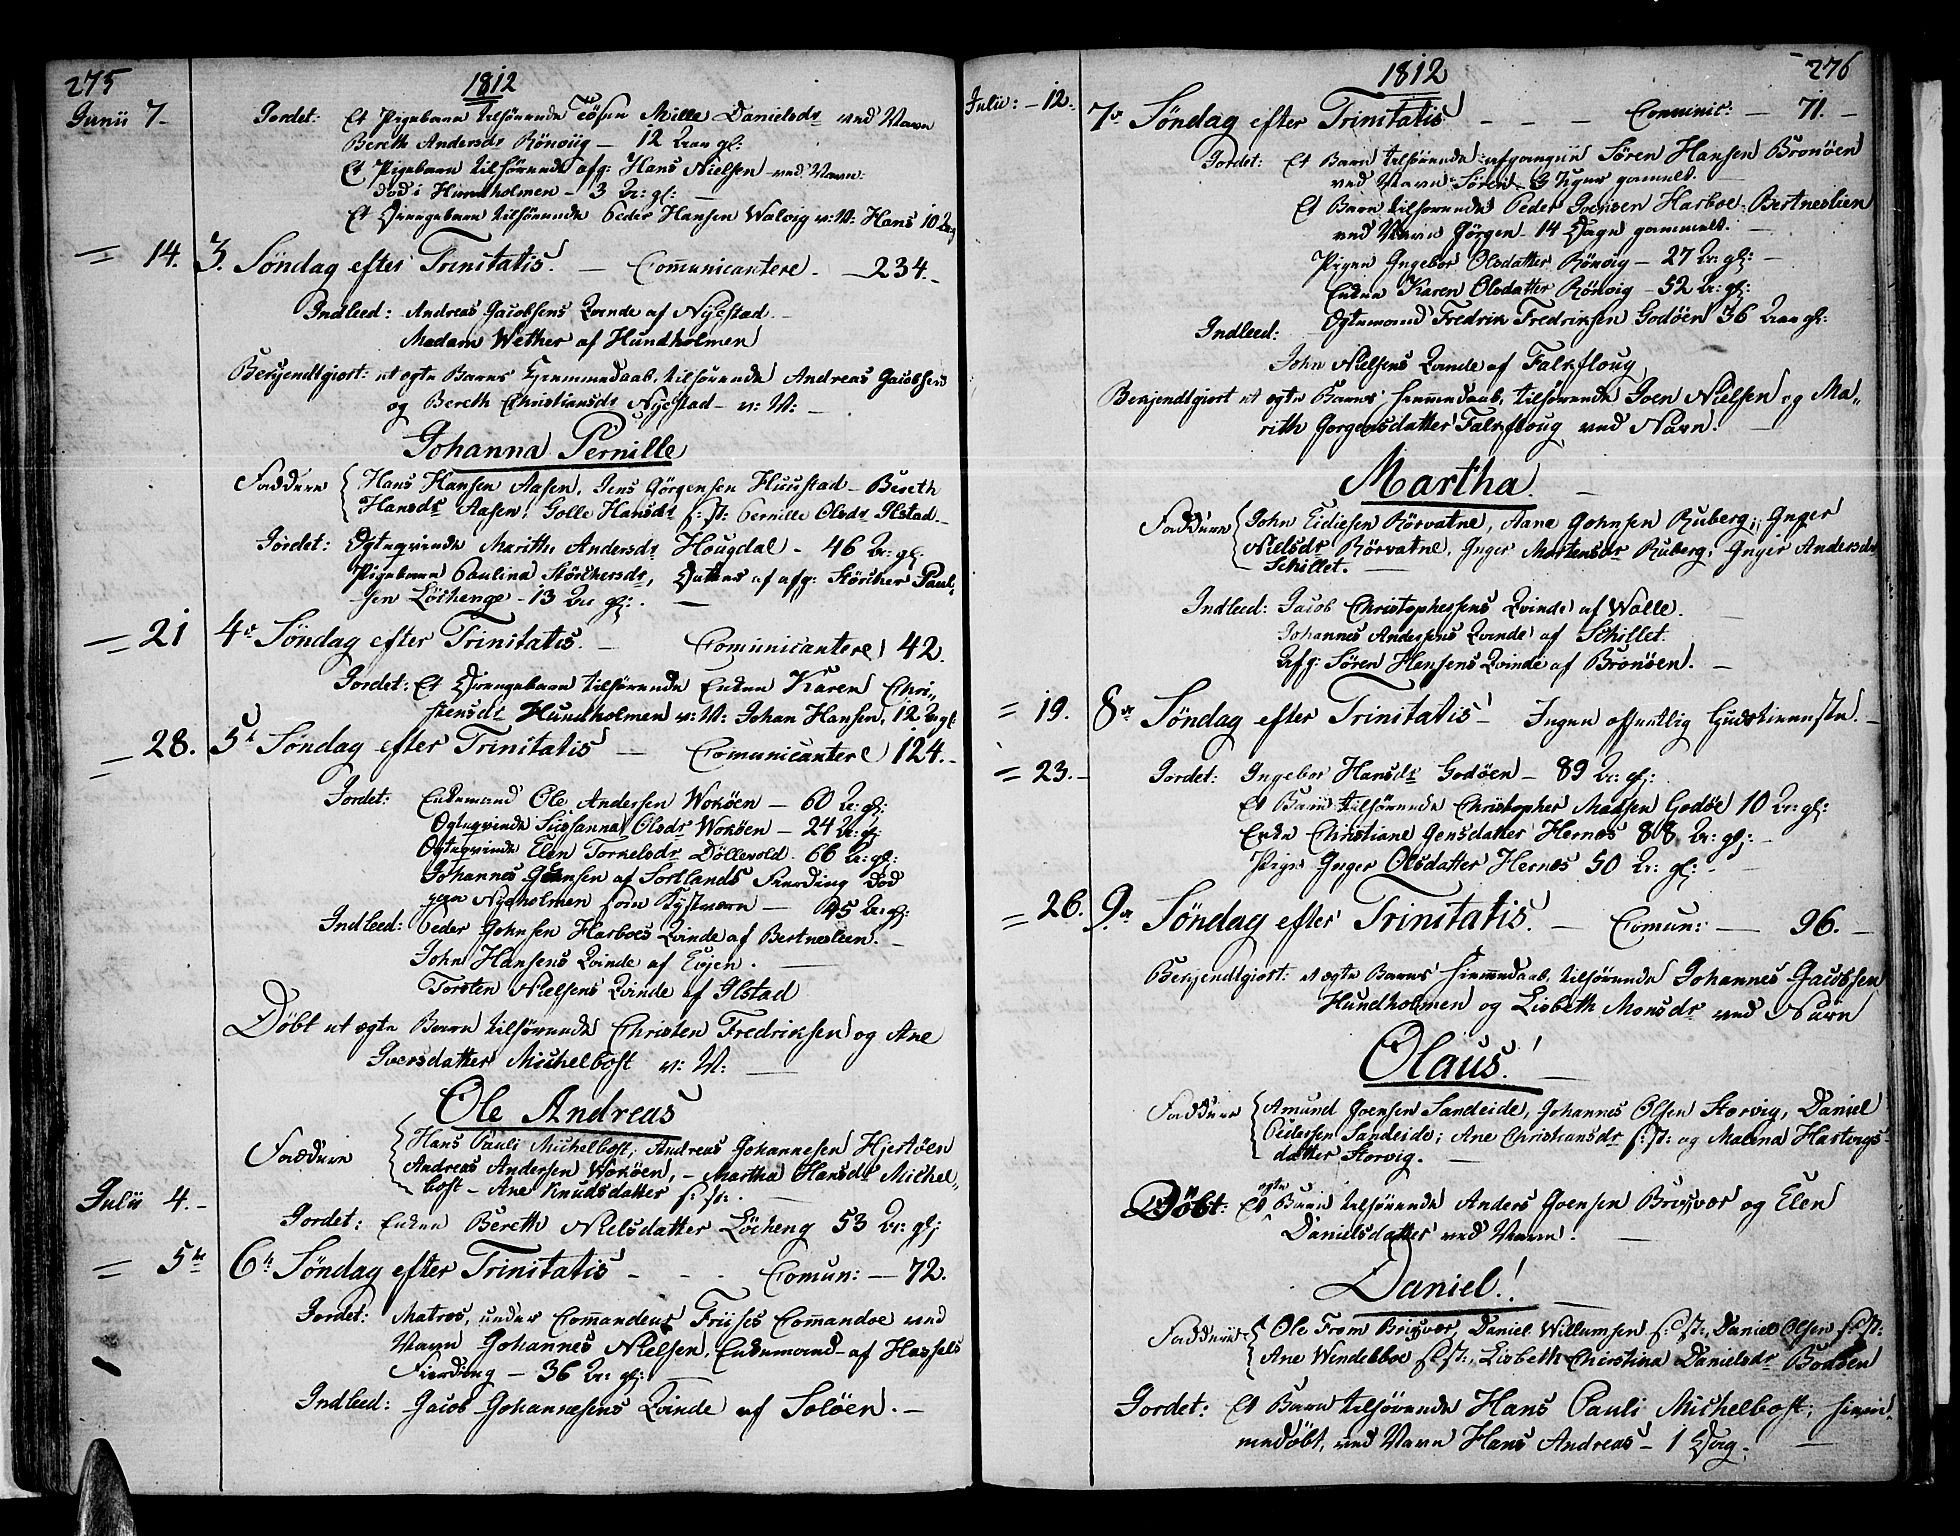 275
1812
Junii 7 Jordet: Et Pigebarn tilhörende Tösen Mille Danielsdr ved Navn
Bereth Andersdr Rönviig — 12 Aar gl:
Et Pigebarn tilhörende afg: Hans Nielsen ved Navn:
död i Hundholmen — 3 Ar: gl: —
Et Drengebarn tilhörende Peder Hansen Walvig v: N: Hans 10
= 14. 3. Søndag efter Trinitatis. — Comunicantere. — 234.
Indleed: Andreas Jacobsens Qvinde af Nyestad.
Madam Wether af Hundholmen
Bekjendtgiort: et ægte Barns Hjemmedaab, tilhörende Andreas Jacobsen
og Bereth Christiansdr Nyestad — v: N: —
Johanna Pernille
Faddere Hans Hansen Aasen, Jens Jörgensen Huustad — Bereth
Hansdr Aasen, Golle Hansdr s: st: Pernille Olsdr Ilstad.
Jordet: Ægteqvinde Marith Andersdr Hougdal — 46 Ar: gl:
Pigebarn Paulina Störchersdr, Datter af afg: Störcher Paul-
sen Löchenge — 13 Ar gl: —
= 21 4de Søndag efter Trinitatis. — Comunicantere 42.
Jordet: Et Drengebarn tilhörende Enken Karen Chri-
stensdr Hundholmen v: N: Johan Hansen, 12 Ar gl
= 28. 5te Søndag efter Trinitatis — Comunicantere 124.
Jordet: Enkemand Ole Andersen Woköen — 60 Ar: gl:
Ægteqvinde Sussanna Olsdr Woköen — 24 Ar: gl:
Ægteqvinde Elen Tornelsdr Döllevold. 66 Ar: gl:
Johannes Jensen af Sortlands Fierding död
paa Nyeholmen som Kystværn — 45 Ar: gl:
Indleed: Peder Johnsen Harboes Qvinde af Bertneslien.
John Hansens Qvinde af Evjen.
Torsten Nielsens Qvinde af Ilstad
Döbt et ægte Barn tilhörende Christen Fredriksen og Ane
Iversdatter Michelbost v: N: —
Ole Andreas
Faddere Hans Pauli Michelbost, Andreas Johannesen Hjertöen
Andreas Andersen Woköen, — Martha Hansdr Michel-
bost — Ane Knudsdatter s: st: .
Julii 4. Jordet: Enken Bereth Nielsdatter Löcheng 53 Ar: gl:
= 5te 6te Søndag efter Trinitatis — Comun: — 72.
Jordet: Matros, under Commandeur Friises Commandoe ved
Navn Johannes Nielsen, Enkemand af Hassels
Fierding — 36 Ar: gl:
Indleed: Jacob Johannesens Qvinde af Solöen. —
1812
276
Julii: — 12. 7de Søndag efter Trinitatis — Comunic: — 71. —
Jordet: Et Barn tilhörende afgangne Sören Hansen Bronöen
ved Navn Sören 3 Uger gammelt. —
Et Barn tilhörende Peder Joensen Harboe Bertneslien
ved Navn Jörgen — 14 Dage gammelt. —
Pigen Ingebor Olsdatter Rönvig — 27 Ar: gl: —
Enken Karen Olsdatter Rönvig — 52 Ar: gl:
Ægtemand Fredrik Fredriksen Godöen 36 Aar gl:
Indleed:
John Nielsens Qvinde af Falkfloug
Bekjendtgiort et ægte Barns hjemmedaab, tilhörende Joen Nielsen og Ma-
rith Jorgensdatter Falkfloug ved Navn. —
Martha. —
Faddere John Eidiesen Rörvatne, Aane Johnsen Ruberg, Inger
Nielsdr Rörvatne, Inger Mortensdr Ruberg, Inger Andersdr
Schillet. —
Indleed: Jacob Christophersens Qvinde af Walle.
Johannes Andersens Qvinde af Schillet.
Afg: Sören Hansens Qvinde af Bronöen. —
= 19. 8de Søndag efter Trinitatis — Ingen offentlig Gudstieneste. —
= 23. — Jordet: Ingebor Hansdr Godöen — 89 Ar: gl:
Et Barn tilhörende Christopher Matsen Godöe 10 Ar: gl:
Enke Christiane Jensdatter Hernes 88 Ar: gl: —
Pige Inger Olsdatter Hernes 50 Ar: gl: —
= 26. 9de Søndag efter Trinitatis. — Comun: — 96. —
Bekjendtgiort: et ægte Barns hiemmedaab, tilhörende Johannes Jacobsen
Hundholmen og Lisbeth Monsdr ved Navn
Olaus! —
Faddere Amund Joensen Sandeide, Johannes Olsen Storvig, Daniel
Pedersen Sandeide; Ane Christiansdr s: st: og Malena Hartvigs-
datter Storvig. —
Döbt: Et ægte Barn tilhörende Anders Joensen Brixvær og Elen
Danielsdatter ved Navn. —
Daniel! —
Faddere Ole From Brixvær, Daniel Willumsen s: st: Daniel Olsen s: st:
Ane Windebboe s: st:, Lisbeth Christina Danielsdr Bodöen
Jordet: Et Barn tilhörende Hans Pauli Michelbost, hjem-
medöbt, ved Navn Hans Andreas — 1 Dag. —